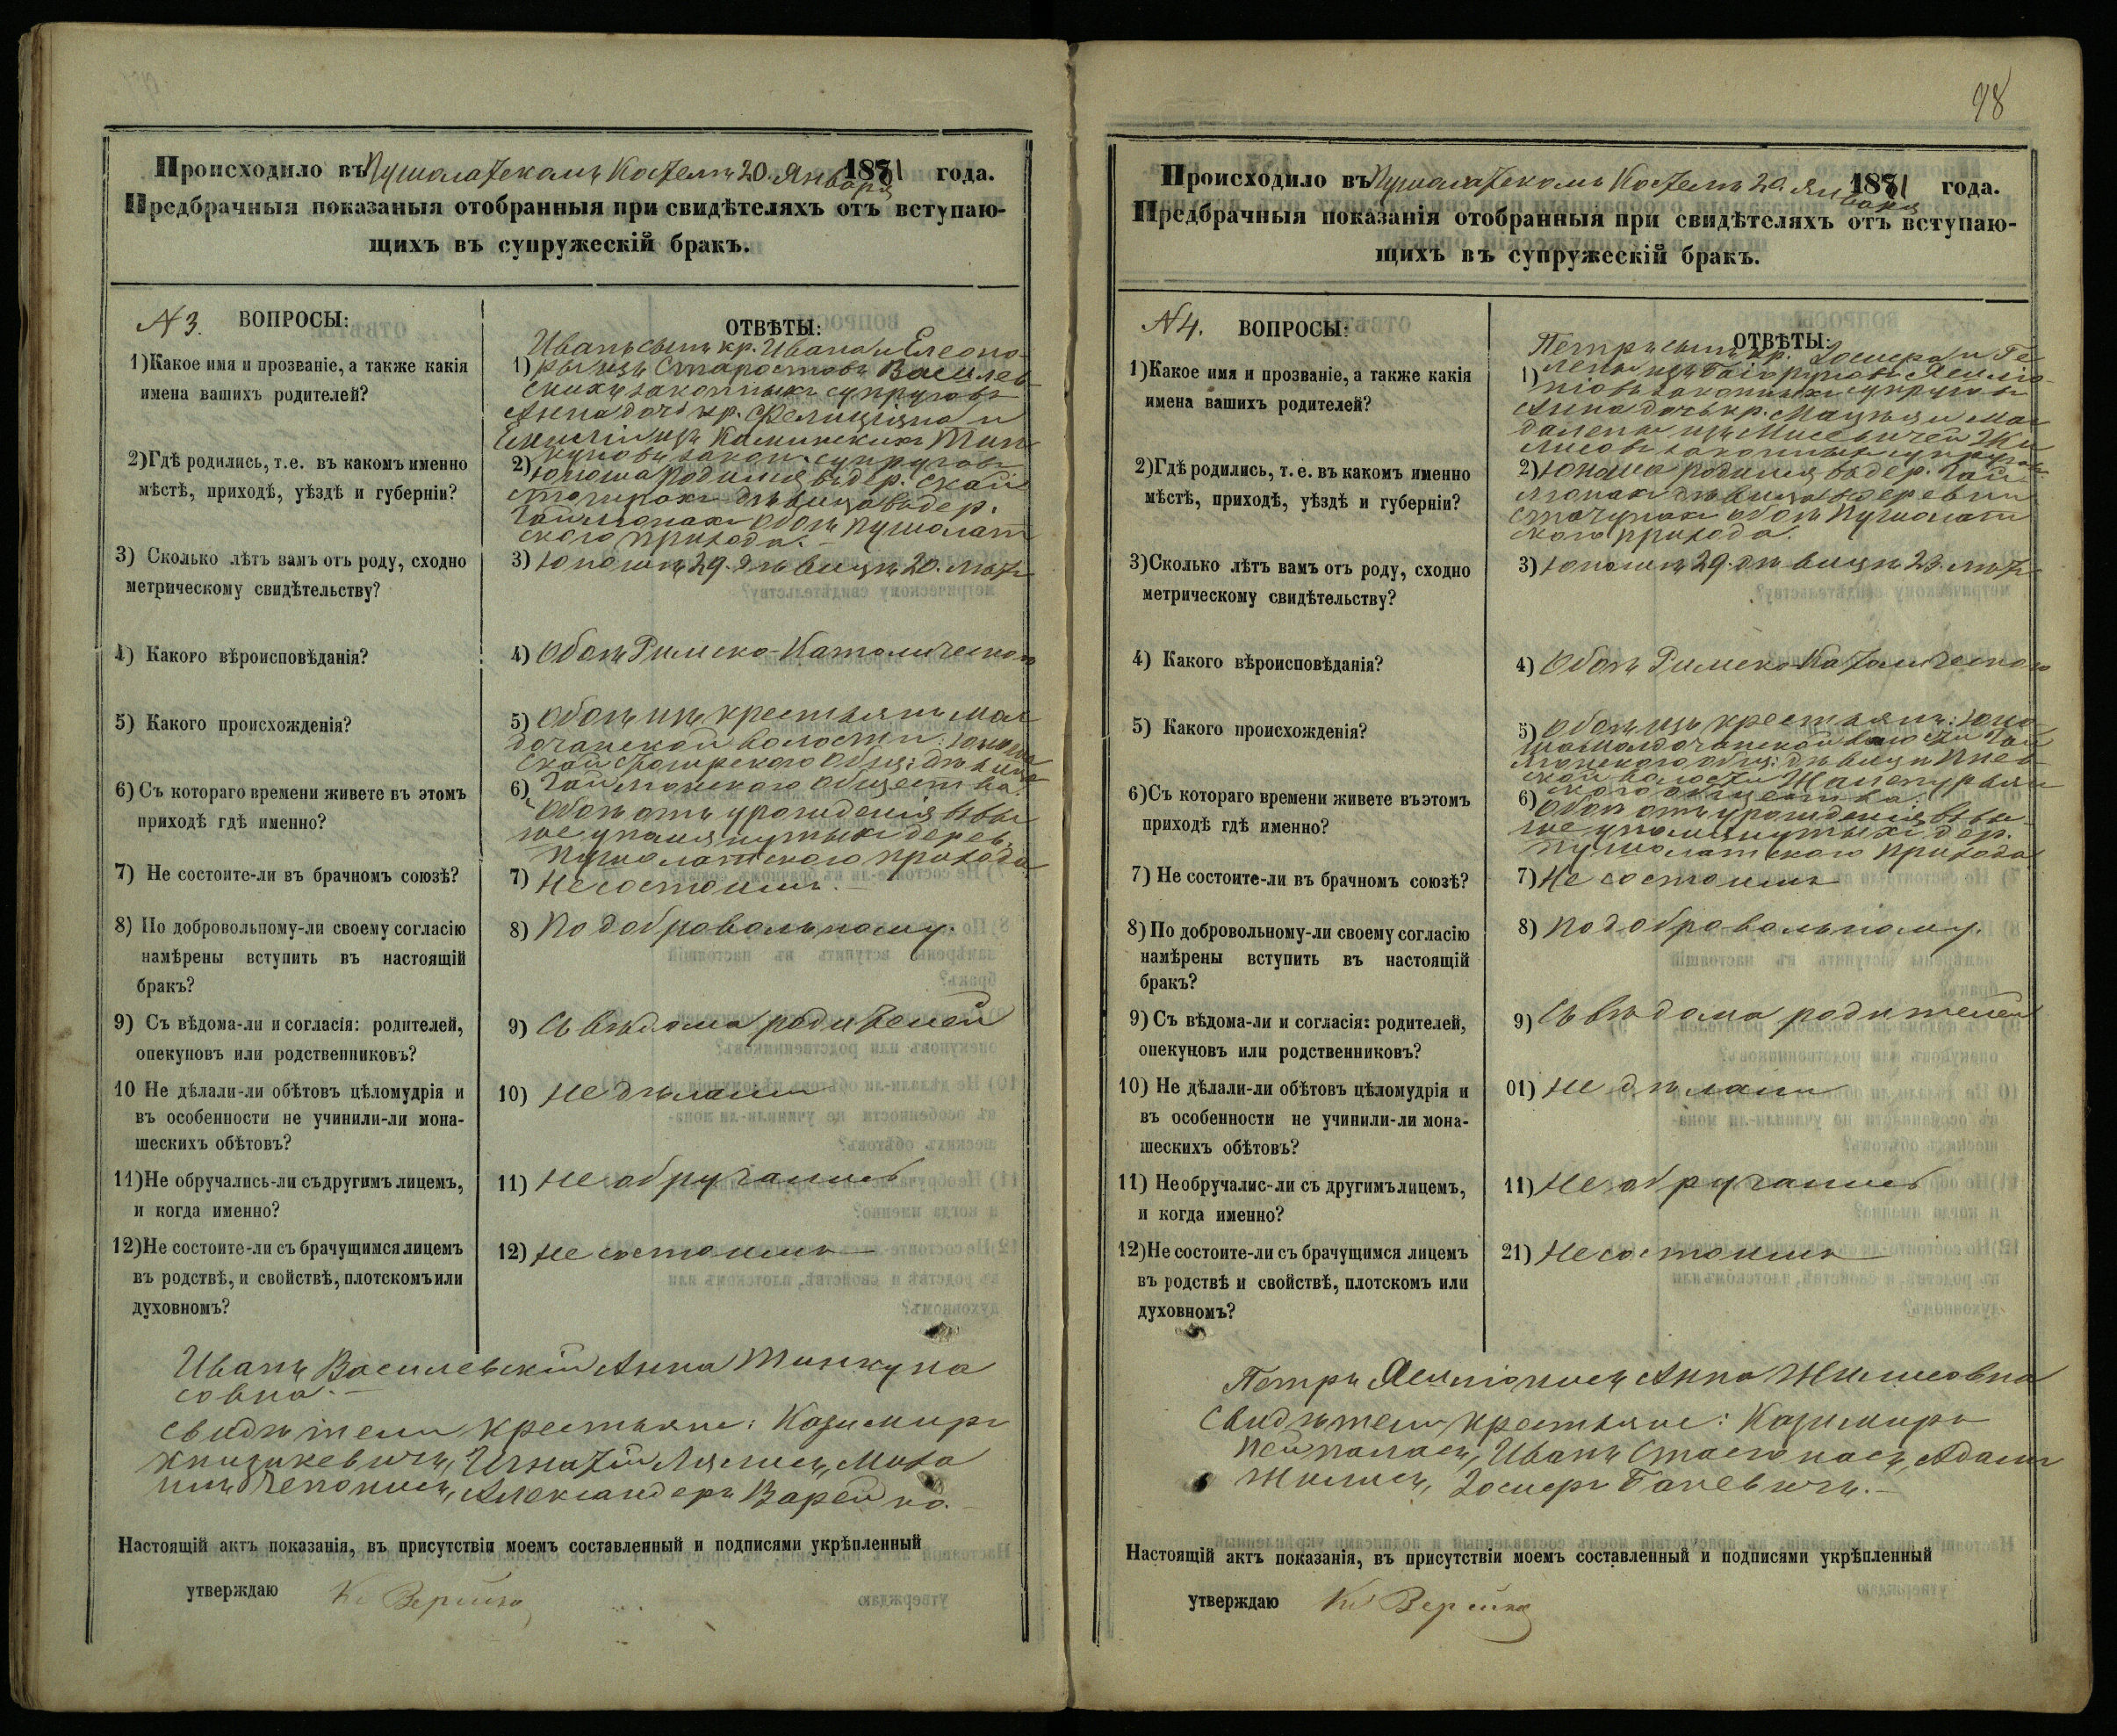 98
Происходило въ Пушолатскомъ Костелѣ 20. Января 1871 года.
Предбрачныя показаныя отобранныя при свидѣтеляхъ отъ вступаю-
щихъ въ супружескій бракъ.
N 3. ВОПРОСЫ:
ОТВѢТЫ:
1) Какое имя и прозваніе, а также какія
имена вашихъ родителей?
Иванъ сынъ кр. Ивана и Елеоно-
1) ры изъ Старостовъ Василев-
скихъ законныхъ супруговъ
Анна дочь кр. Фелиціяна и
Емиліи изъ Каминскихъ
законн. супруговъ
2) Гдѣ родились, т. е. въ какомъ именно
мѣстѣ, приходѣ, уѣздѣ и губерніи?
2) Юноша родился въ дер.
дѣвица въ дер.
обоѣ Пушолат
ского прихода.
3) Сколько лѣтъ вамъ отъ роду, сходно
метрическому свидѣтельству?
3) Юношѣ 29. дѣвицѣ 20. лѣтъ
4) Какого вѣроисповѣданія?
4) Обоѣ Римско-Католическаго
5) Какого происхожденія?
5) Обоѣ изъ крестьянъ
волости: Юноша
общ: дѣвица
общества.
6) Съ котораго времени живете въ этомъ
приходѣ гдѣ именно?
6) Обоѣ отъ урожденія въ вы
ше упомянутыхъ дерев.
Пушолатского прихода
7) Не состоите-ли въ брачномъ союзѣ?
7) Не состоимъ. —
8) По добровольному-ли своему согласію
намѣрены вступить въ настоящій
бракъ?
8) По добровольному.
9) Съ вѣдома-ли и согласія: родителей,
опекуновъ или родственниковъ?
9) Съ вѣдома родителей
10 Не дѣлали-ли обѣтовъ цѣломудрія и
въ особенности не учинили-ли мона-
шескихъ обѣтовъ?
10) Не дѣлали
11) Не обручались-ли съ другимъ лицемъ,
и когда именно?
11) Не обручались
12) Не состоите-ли съ брачущимся лицемъ
въ родствѣ, и свойствѣ, плотскомъ или
духовномъ?
12) Не состоимъ —
Иванъ Василевскій Анна Тинкуна
совна. —
Свидѣтели крестьяне: Казимиръ
Игнатій Миха
илъ Александеръ Варейко. —
Настоящій актъ показанія, въ присутствіи моемъ составленный и подписями укрѣпленный
утверждаю
Происходило въ Пушолатскомъ Костелѣ 20. Января 1871 года.
Предбрачныя показанія отобранныя при свидѣтеляхъ отъ вступаю-
щихъ въ супружескій бракъ.
N 4. ВОПРОСЫ:
ОТВѢТЫ:
1) Какое имя и прозваніе, а также какія
имена вашихъ родителей?
Петръ сынъ кр. Іосифа и Ге
1) лены изъ
законныхъ супруговъ
Анна дочь кр. Мацѣя и Маг
далены изъ Мисевичей Жи
лисовъ законныхъ супруговъ
2) Гдѣ родились, т. е. въ какомъ именно
мѣстѣ, приходѣ, уѣздѣ и губерніи?
2) Юноша родился въ дер.
дѣвица въ деревни
обоѣ Пушолат
ского прихода.
3) Сколько лѣтъ вамъ отъ роду, сходно
метрическому свидѣтельству?
3) Юношѣ 29. дѣвицѣ 23. лѣтъ
4) Какого вѣроисповѣданія?
4) Обоѣ Римско-Католическаго
5) Какого происхожденія?
5) Обоѣ изъ крестьянъ: Юно
ша волости
общ: дѣвица
волости
общества.
6) Съ котораго времени живете въ этомъ
приходѣ гдѣ именно?
6) Обоѣ отъ урожденія въ вы-
ше упомянутыхъ дер.
Пушолатского прихода
7) Не состоите-ли въ брачномъ союзѣ?
7) Не состоимъ
8) По добровольному-ли своему согласію
намѣрены вступить въ настоящій
бракъ?
8) По добровольному.
9) Съ вѣдома-ли и согласія: родителей,
опекуновъ или родственниковъ?
9) Съ вѣдома родителей
10) Не дѣлали-ли обѣтовъ цѣломудрія и
въ особенности не учинили-ли мона-
шескихъ обѣтовъ?
01) Не дѣлали
11) Не обручалис-ли съ другимъ лицемъ,
и когда именно?
11) Не обручались
12) Не состоите-ли съ брачущимся лицемъ
въ родствѣ и свойствѣ, плотскомъ или
духовномъ?
21) Не состоимъ —
Петръ Анна Жилисовна
Свидѣтели крестьяне: Казимиръ
Иванъ Адамъ
Жилисъ, Іосифъ —
Настоящій актъ показанія, въ присутствіи моемъ составленный и подписями укрѣпленный
утверждаю